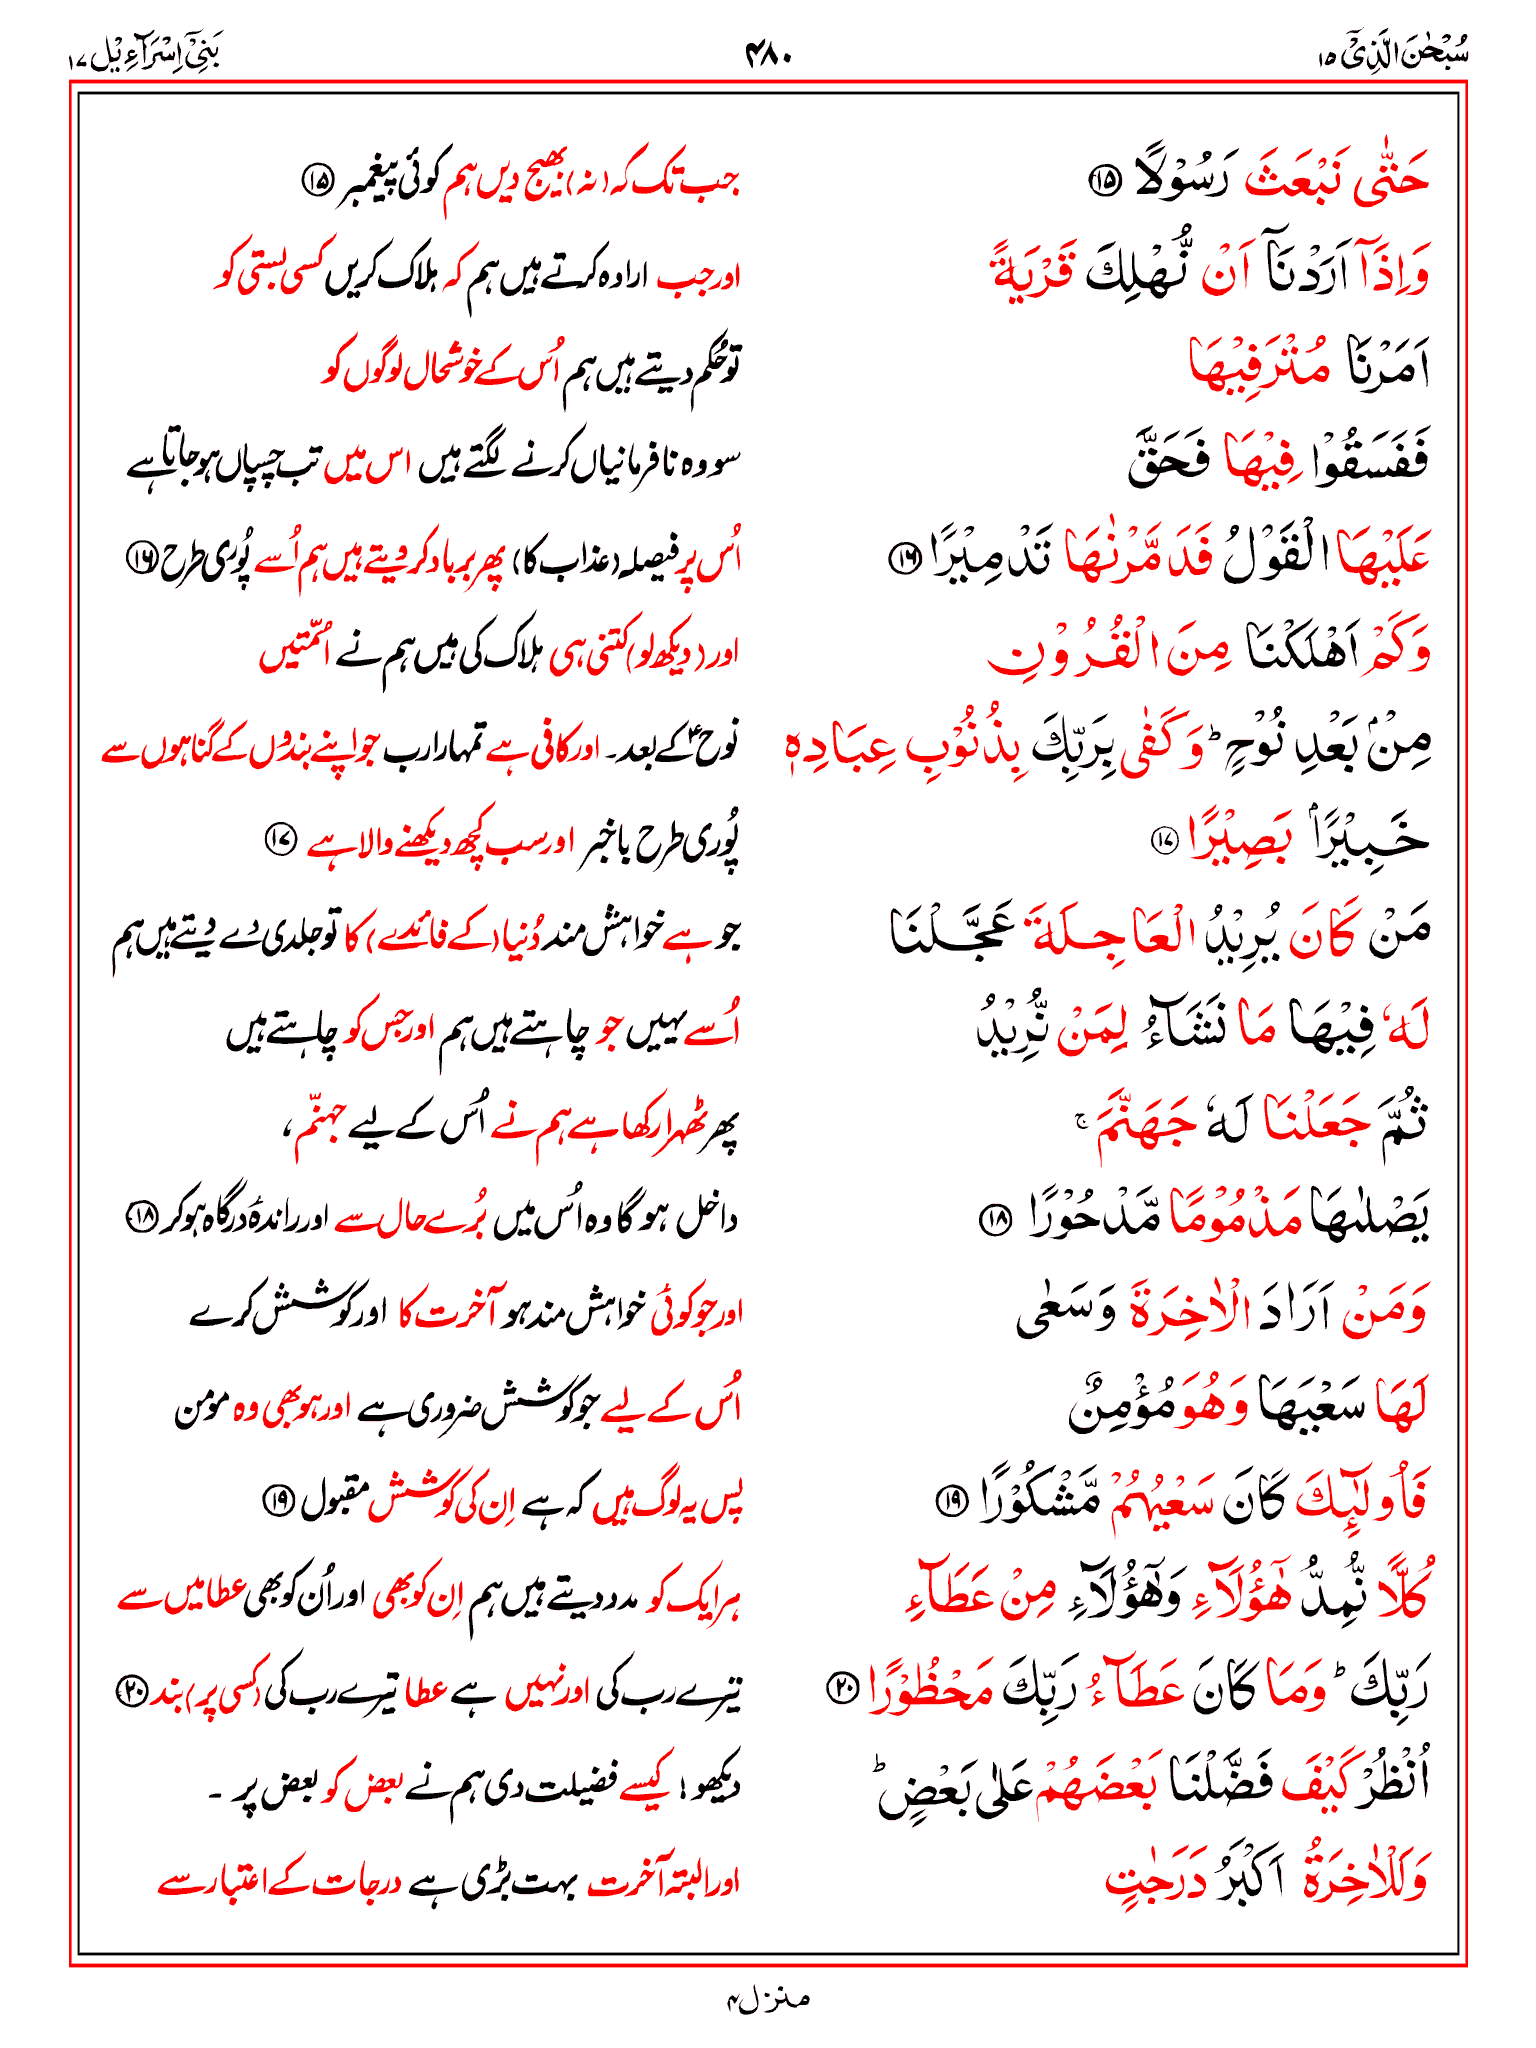 سُبْحٰنَ الَّذِیْۤ ۱۵ ۴۸۰ بَنِیْۤ اِسْرَآءِیْل ۱۷
حَتّٰى نَبْعَثَ رَسُوْلًا ۝۱۵ جب تک کہ (نہ) بھیج دیں ہم کوئی پیغمبر ۝۱۵
وَاِذَاۤ اَرَدْنَاۤ اَنْ نُّهْلِكَ قَرْيَةً اور جب ارادہ کرتے ہیں ہم کہ ہلاک کریں کسی بستی کو
اَمَرْنَا مُتْرَفِيْهَا تو حُکم دیتے ہیں ہم اُس کے خوشحال لوگوں کو
فَفَسَقُوْا فِيْهَا فَحَقَّ سو وہ نافرمانیاں کرنے لگتے ہیں اس میں تب چسپاں ہوجاتا ہے
عَلَيْهَا الْقَوْلُ فَدَمَّرْنٰهَا تَدْمِيْرًا ۝۱۶ اُس پر فیصلہ (عذاب کا) پھر برباد کر دیتے ہیں ہم اُسے پُوری طرح ۝۱۶
وَكَمْ اَهْلَكْنَا مِنَ الْقُرُوْنِ اور (دیکھ لو) کتنی ہی ہلاک کی ہیں ہم نے اُمّتیں
مِنْۢ بَعْدِ نُوْحٍ ؕ وَكَفٰى بِرَبِّكَ بِذُنُوْبِ عِبَادِهٖ نوح ؑ کے بعد۔ اور کافی ہے تمہارا رب جو اپنے بندوں کے گناہوں سے
خَبِيْرًۢا بَصِيْرًا ۝۱۷ پُوری طرح باخبر اور سب کچھ دیکھنے والا ہے ۝۱۷
مَنْ كَانَ يُرِيْدُ الْعَاجِلَةَ عَجَّلْنَا جو ہے خواہش مند دُنیا (کے فائدے) کا تو جلدی دے دیتے ہیں ہم
لَهٗ فِيْهَا مَا نَشَآءُ لِمَنْ نُّرِيْدُ اُسے یہیں جو چاہتے ہیں ہم اور جس کو چاہتے ہیں
ثُمَّ جَعَلْنَا لَهٗ جَهَنَّمَ ۚ پھر ٹھہرا رکھا ہے ہم نے اُس کے لیے جہنّم،
يَصْلٰىهَا مَذْمُوْمًا مَّدْحُوْرًا ۝۱۸ داخل ہوگا وہ اُس میں بُرے حال سے اور راندۂ درگاہ ہوکر ۝۱۸
وَمَنْ اَرَادَ الْاٰخِرَةَ وَسَعٰى اور جو کوئی خواہش مند ہو آخرت کا اور کوشش کرے
لَهَا سَعْيَهَا وَهُوَ مُؤْمِنٌ اُس کے لیے جو کوشش ضروری ہے اور ہو بھی وہ مومن
فَاُولٰٓئِكَ كَانَ سَعْيُهُمْ مَّشْكُوْرًا ۝۱۹ پس یہ لوگ ہیں کہ ہے اِن کی کوشش مقبول ۝۱۹
كُلًّا نُّمِدُّ هٰٓؤُلَآءِ وَهٰٓؤُلَآءِ مِنْ عَطَآءِ ہر ایک کو مدد دیتے ہیں ہم اِن کو بھی اور اُن کو بھی عطا میں سے
رَبِّكَ ؕ وَمَا كَانَ عَطَآءُ رَبِّكَ مَحْظُوْرًا ۝۲۰ تیرے رب کی اور نہیں ہے عطا تیرے رب کی (کسی پر) بند ۝۲۰
اُنْظُرْ كَيْفَ فَضَّلْنَا بَعْضَهُمْ عَلٰى بَعْضٍ ؕ دیکھو! کیسے فضیلت دی ہم نے بعض کو بعض پر ۔
وَلَلْاٰخِرَةُ اَكْبَرُ دَرَجٰتٍ اور البتہ آخرت بہت بڑی ہے درجات کے اعتبار سے
منزل ۴